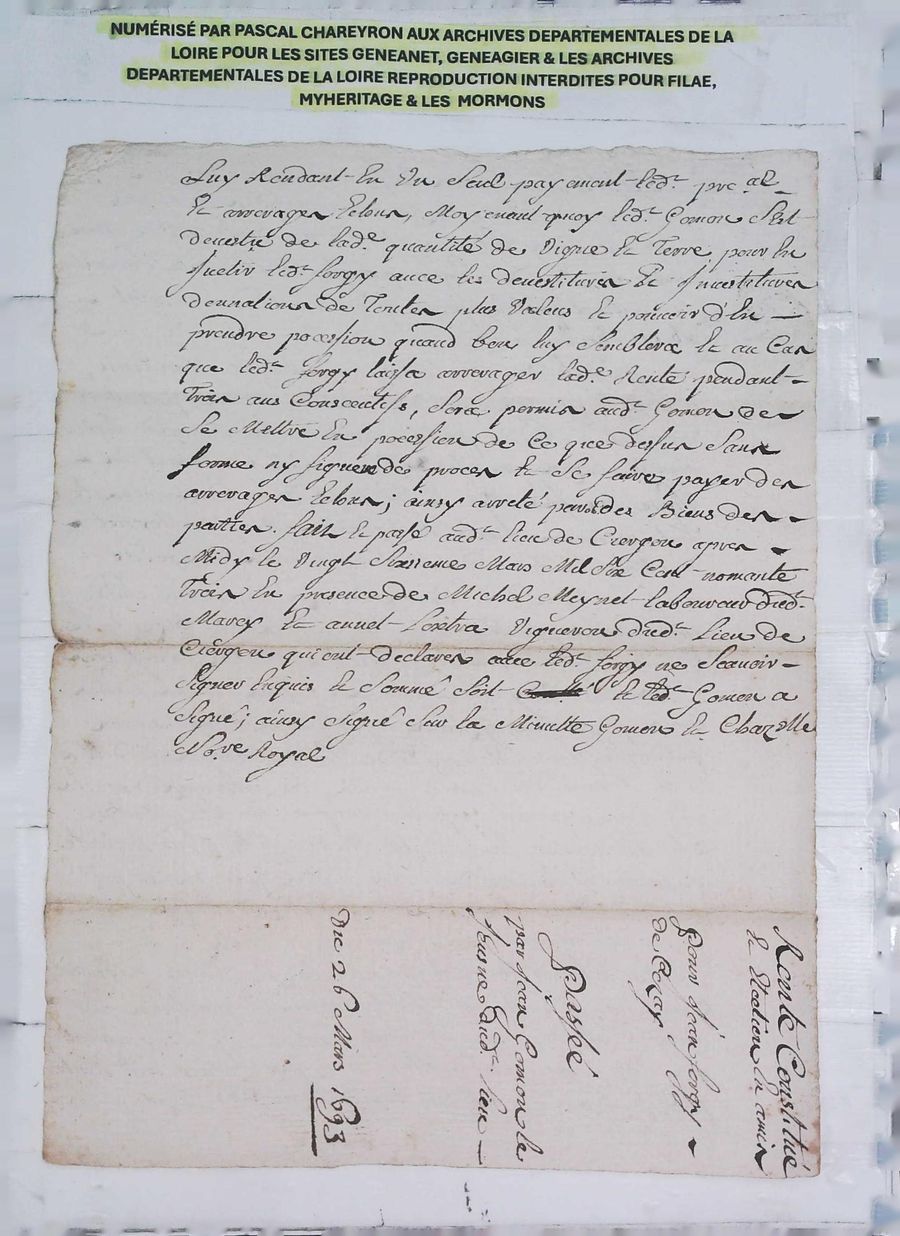 NUMÉRISÉ PAR PASCAL CHAREYRON AUX ARCHIVES DEPARTEMENTALES DE LA
LOIRE POUR LES SITES GENEANET, GENEAGIER & LES ARCHIVES
DEPARTEMENTALES DE LA LOIRE REPRODUCTION INTERDITES POUR FILAE,
MYHERITAGE & LES MORMONS
Luy Rendant En Un Seul payement led.t
Et arrerages Echus, Moyenant quoy led.t Gomon S'est
devestu de lad.e quantité de Vigne Et Terre, pour En
Investir led.t forgy avec les devestitures Et Investitures
donnations de Toutes plus Valeus Et pouvoir d'En
prendre pocession quand bon luy Semblera Et au Cas
que led.t forgy laissa arrerager lad.e Rente pendant
Trois ans Consecutifs, Sera permis aud.t Gomon de
Se Mettre En pocession de Ce que dessus Sans
forme ny figure de proces Et Se faire payer des
arrerages Echus; ainsy arreté Biens des
parties. fait Et passé aud.t lieu de Ciergou apres
Midy le Vingt Sixieme Mars Mil Six Cent nonante
Trois En presence de Michel Meynet laboureur dud.t
Marey Et annet Vigneron dud.t Lieu de
Ciergou qui ont declarer avec led.t forgy ne Scavoir
Signer Enquis Et Sommé Et led.t Gomon a
Signé; ainsy Signé Sur la Minutte Gomon Et Chazelle
No.re Royal
Rente Constitué
Et
Pour Jean forgy
de Cezay
Passée
par Jean Gomon le
Jeusne dud.t Lieu
Du 26 Mars 1693